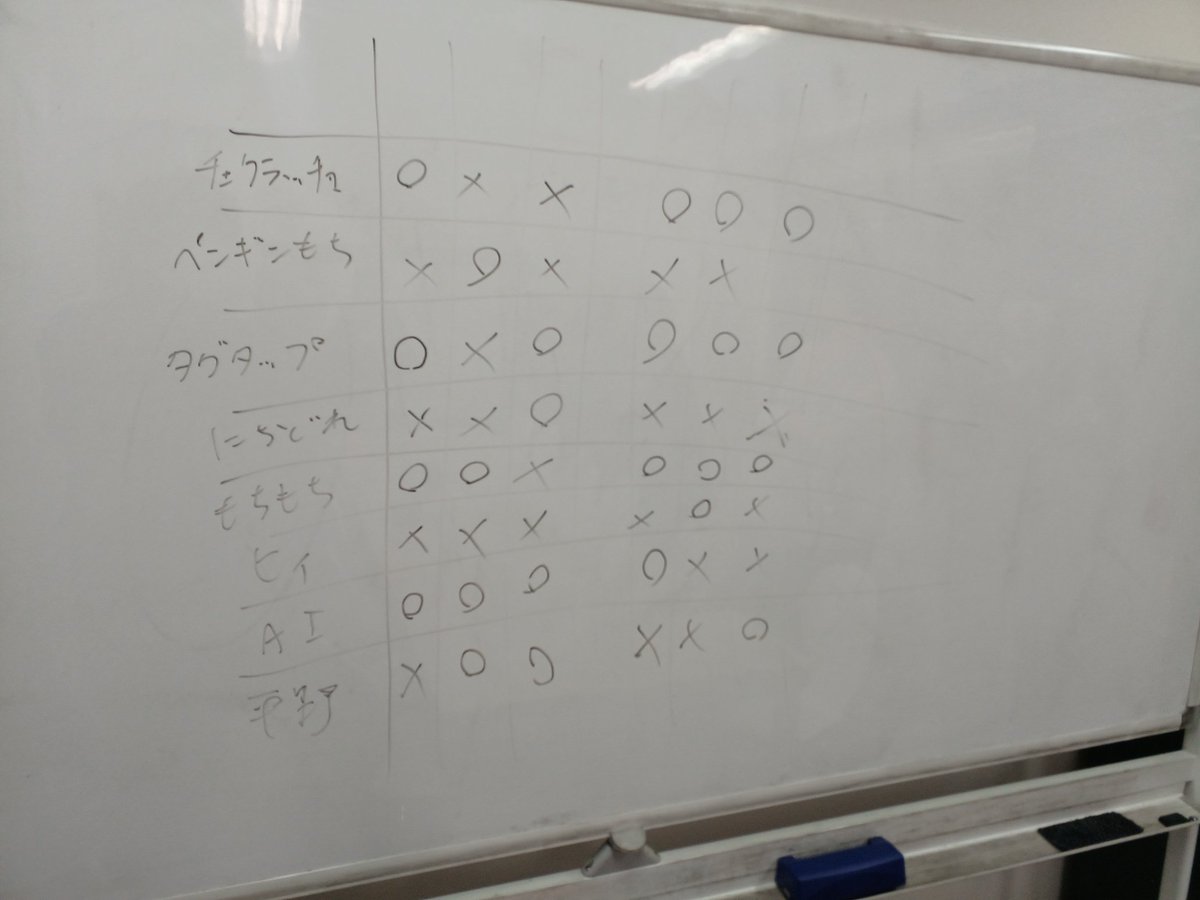 チェクラッチュ ○ × × ○ ○ ○
ペンギンもち × ○ × × ×
タグタップ ○ × ○ ○ ○ ○
にちどれ × × ○ × × ×
もちもち ○ ○ × ○ ○ ○
ヒイ × × × × ○ ×
AI ○ ○ ○ ○ × ×
平野 × ○ ○ × × ○